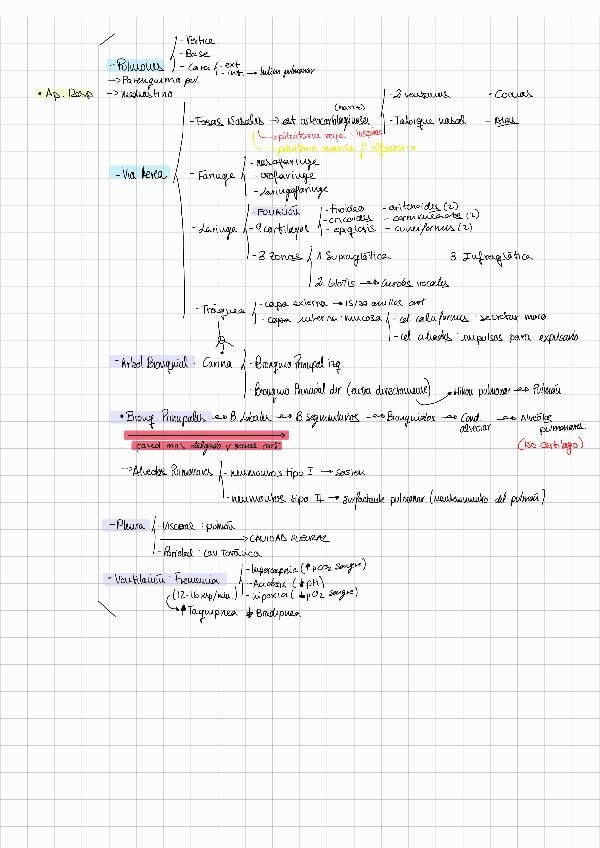 - Vértice
- Base
- Pulmones
- Cara - ext
- int → hilion pulmonar
→ Parenquima pul.
• Ap. Resp → Mediastino
(nariz)
- 2 ventanas - Coanas
- Fosas Nasales → est osteocartilaginosa - Tabique nasal
→ pituitaria roja: inspira
→ pituitaria amarilla / olfactoria
- Vía Aérea
- nasofaringe
- Faringe - orofaringe
- Laringofaringe
- FONACIÓN
- tiroides - aritenoides (2)
- Laringe - 9 cartílagos - cricoides - corniculados (2)
- epiglotis - cuneiformes (2)
- 3 zonas 1 Supraglótica 3. Infraglótica
2. Glotis → Cuerdas vocales
- Tráquea - capa externa → 15/20 anillos cart
- capa interna: mucosa - cel caliciformes: secretar moco
- cel ciliadas: impulsos para expulsarlo
- Árbol Bronquial - Carina - Bronquio Principal izq
- Bronquio Principal dir (entra directamente) → Hilion pulmonar → Pulmón
• Bronq Principales → B. lobales → B segmentarios → Bronquiolos → Cond. alveolar → Alveolos pulmonares
pared más delgada y menos cart (No cartílago)
→ Alveolos Pulmonares - neumocitos tipo I → sostén
- neumocitos tipo II → surfactante pulmonar (mantenimiento del pulmón)
- Pleura - Visceral: pulmón
→ CAVIDAD PLEURAL
- Parietal: cav torácica
- Ventilación: Frecuencia - hipercapnia (↑ pCO2 sangre)
(12-16 resp/min.) - Acidosis (↓ pH)
- hipoxia (↓ pO2 sangre)
↑ Taquipnea ↓ Bradipnea